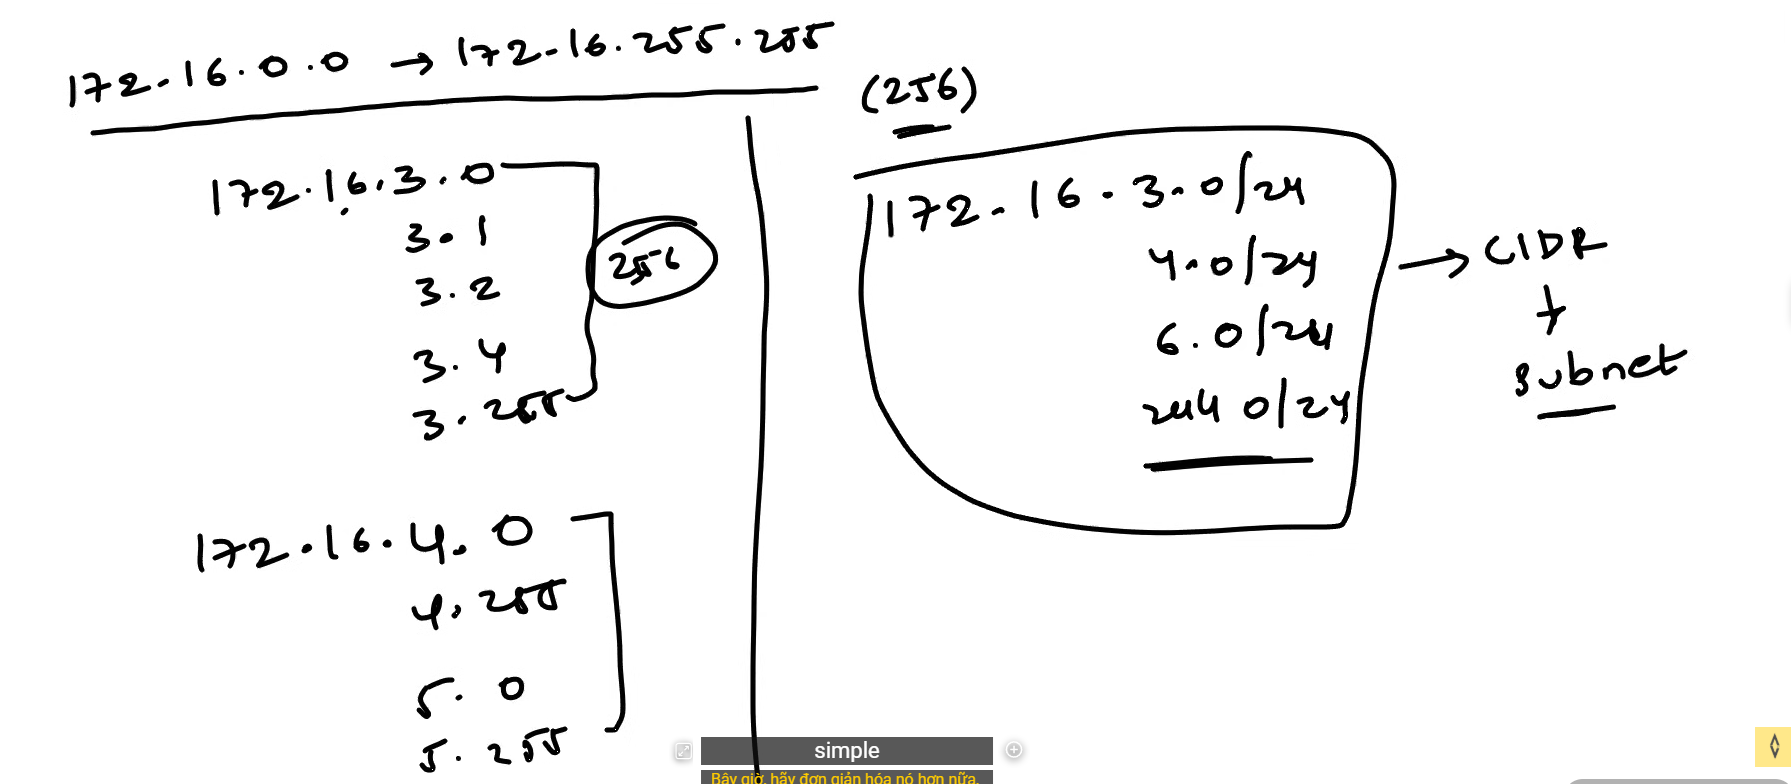 172.16.0.0 → 172.16.255.255
(256)
172.16.3.0
3.1
3.2
3.4
3.255
256
172.16.4.0
4.255
5.0
5.255
172.16.3.0/24
4.0/24
6.0/24
244 0/24
→ CIDR
+
subnet
simple
Bây giờ, hãy đơn giản hóa nó hơn nữa.